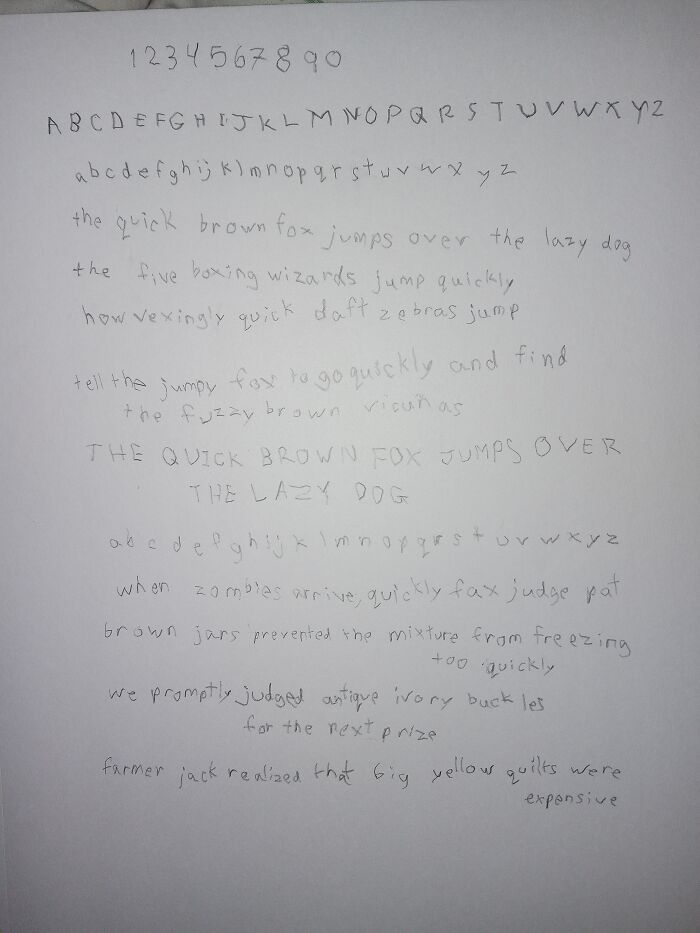 1234567890
A B C D E F G H I J K L M N O P Q R S T U V W X Y Z
a b c d e f g h i j k l m n o p q r s t u v w x y z
the quick brown fox jumps over the lazy dog
the five boxing wizards jump quickly
how vexingly quick daft zebras jump
tell the jumpy fox to go quickly and find
the fuzzy brown vicunas
THE QUICK BROWN FOX JUMPS OVER
THE LAZY DOG
a b c d e f g h i j k l m n o p q r s t u v w x y z
when zombies arrive, quickly fax judge pat
brown jars prevented the mixture from freezing
too quickly
we promptly judged antique ivory buckles
for the next prize
farmer jack realized that big yellow quilts were
expensive